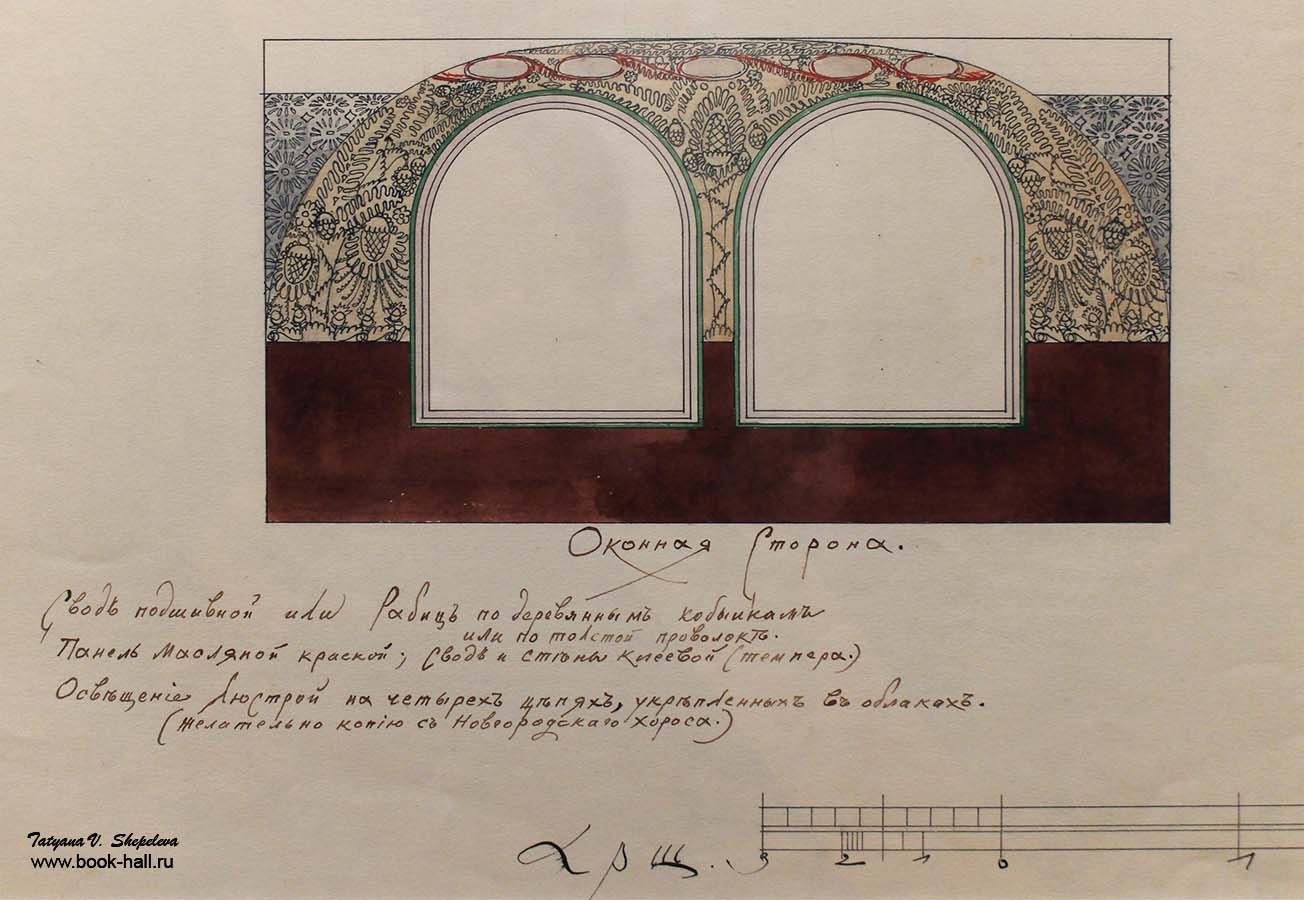 Оконная Сторона.
Сводъ подшивной или Рабицъ по деревяннымъ кобылкамъ
или по толстой проволокѣ.
Панель масляной краской; Сводъ и стѣны клеевой (темпера.)
Освѣщеніе люстрой на четырехъ цѣпяхъ, укрѣпленныхъ въ облакахъ.
(желательно копію съ Новгородскаго хороса.)
3 2 1 0 1
Tatyana V. Shepeleva
www.book-hall.ru